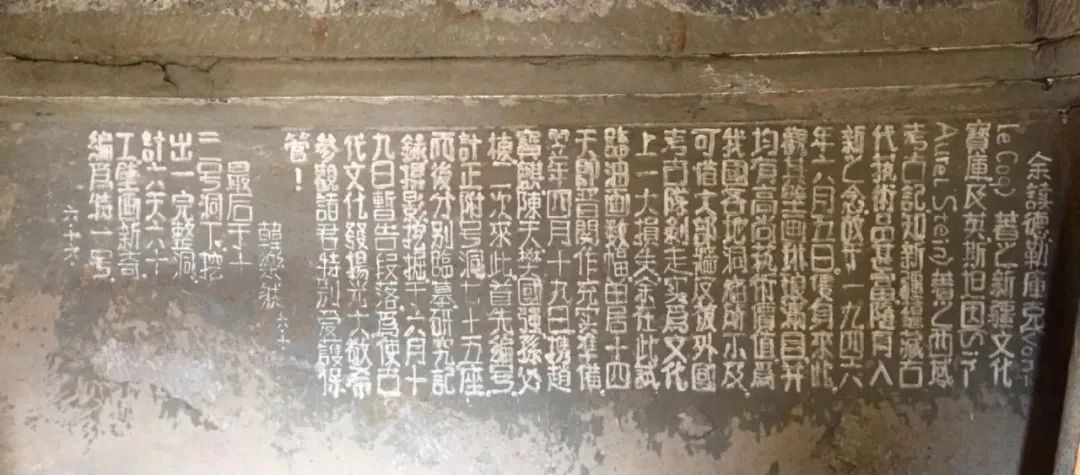 余讀德勒庫克(Von
Le Coq) 著之新疆文化
寶庫及英斯坦因(Sir
Aurel Stein)著之西域
考古記知新疆蘊藏古
代藝術品甚富隨有入
新之念故于一九四六
年六月五日隻身來此
觀其壁画琳琅滿目并
均有高尚藝術價值為
我國各地洞廟所不及
可惜大部牆皮被外國
考古隊剥走实為文化
上一大損失余在此試
臨油画数幅留居十四
天即晋関作充实準備
翌年四月十九日携趙
寶麒陳天樊國强孫必
棟二次來此首先編号
計正附号洞七十五座
而後分别臨摹研究記
錄攝影挖掘于六月十
九日暫告段落為使古
代文化發揚光大敬希
參觀諸君特别愛護保
管!
韓樂然 六十
最后于十
三号洞下挖
出一完整洞
計六天六十
工壁画新奇
編為特一号
六十六